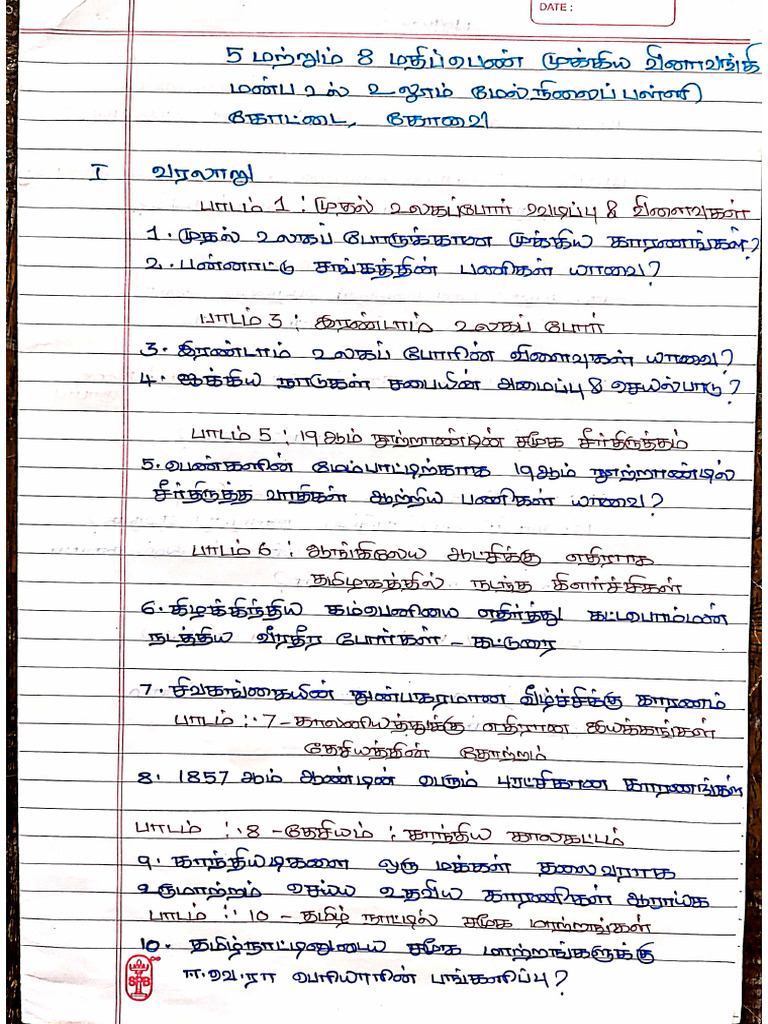 DATE :
5 மற்றும் 8 மதிப்பெண் முக்கிய வினாவங்கி
மன்ப உல் உலூம் மேல்நிலைப்பள்ளி
கோட்டை, கோவை
I வரலாறு
பாடம் 1 : முதல் உலகப்போர் வெடிப்பு & விளைவுகள்
1. முதல் உலகப் போருக்கான முக்கிய காரணங்கள்?
2. பன்னாட்டு சங்கத்தின் பணிகள் யாவை?
பாடம் 3 : இரண்டாம் உலகப் போர்
3. இரண்டாம் உலகப் போரின் விளைவுகள் யாவை?
4. ஐக்கிய நாடுகள் சபையின் அமைப்பு & செயல்பாடு?
பாடம் 5 : 19 ஆம் நூற்றாண்டின் சமூக சீர்திருத்தம்
5. பெண்களின் மேம்பாட்டிற்காக 19 ஆம் நூற்றாண்டில்
சீர்திருத்த வாதிகள் ஆற்றிய பணிகள் யாவை?
பாடம் 6 : ஆங்கிலேய ஆட்சிக்கு எதிராக
தமிழகத்தில் நடந்த கிளர்ச்சிகள்
6. கிழக்கிந்திய கம்பெனியை எதிர்த்து கட்டபொம்மன்
நடத்திய வீரதீர போர்கள் - கட்டுரை
7. சிவகங்கையின் துன்பகரமான வீழ்ச்சிக்கு காரணம்
பாடம் : 7 - காலனியத்துக்கு எதிரான இயக்கங்கள்
தேசியத்தின் தோற்றம்
8. 1857 ஆம் ஆண்டின் பெரும் புரட்சிகான காரணங்கள்
பாடம் : 8 - தேசியம் : காந்திய காலகட்டம்
9. காந்தியடிகளை ஒரு மக்கள் தலைவராக
உருமாற்றம் செய்ய உதவிய காரணிகள் ஆராய்க
பாடம் : 10 - தமிழ் நாட்டில் சமூக மாற்றங்கள்
10. தமிழ்நாட்டினுடைய சமூக மாற்றங்களுக்கு
ஈ.வெ.ரா பெரியாரின் பங்களிப்பு?
SPB